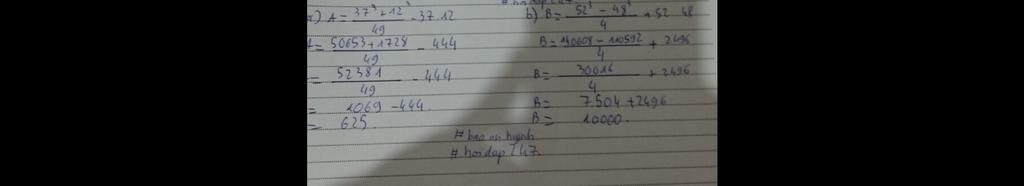 a) A = 37³ + 12³ / 49 - 37.12
A = 50653 + 1728 / 49 - 444
= 52381 / 49 - 444
= 1069 - 444
= 625
b) B = 52³ - 48³ / 4 + 52.48
B = 140608 - 110592 / 4 + 2496
B = 30016 / 4 + 2496
B = 7504 + 2496
B = 10000.
# hoidap247